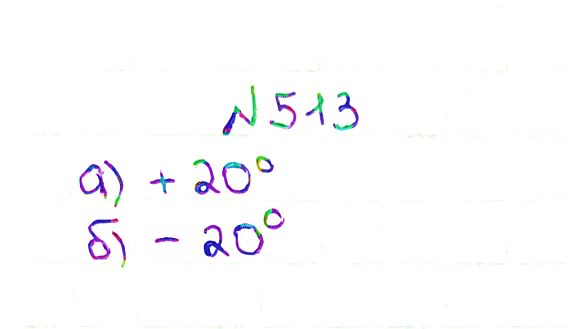 №513
а) + 20°
б) - 20°